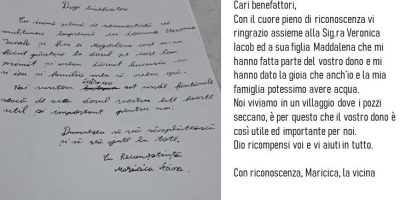 Dragi binefăcători
Cu inimă plină de recunoștință vă
mulțumesc împreună cu doamna Veronica
Iacob și fiica ei Magdalena care mi-au
făcut părtașă la darul pe care l-am
primit și mi-au dăruit bucuria ca
eu și familia mea să avem apă.
Noi suntem într-un sat unde fântânile
seacă de aceea darul vostru este foarte
util și important pentru noi.
Dumnezeu să vă răsplătească
și să vă ajute în toate.
Cu Recunoștință
Maricica
Cari benefattori,
Con il cuore pieno di riconoscenza vi
ringrazio assieme alla Sig.ra Veronica
Iacob ed a sua figlia Maddalena che mi
hanno fatta parte del vostro dono e mi
hanno dato la gioia che anch'io e la mia
famiglia potessimo avere acqua.
Noi viviamo in un villaggio dove i pozzi
seccano, è per questo che il vostro dono è
così utile ed importante per noi.
Dio ricompensi voi e vi aiuti in tutto.
Con riconoscenza, Maricica, la vicina